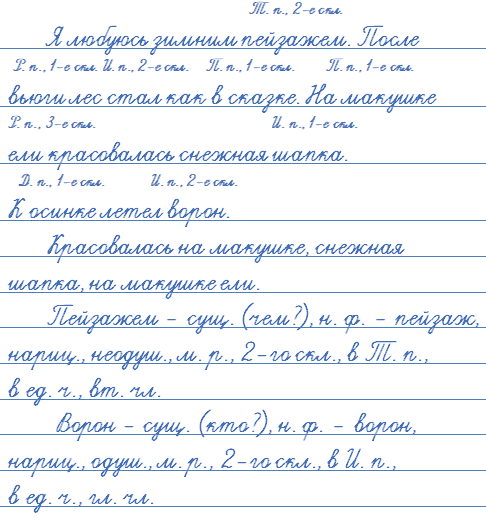 Т. п., 2-е скл.
Я любуюсь зимним пейзажем. После
Р. п., 1-е скл. И. п., 2-е скл. П. п., 1-е скл. П. п., 1-е скл.
вьюги лес стал как в сказке. На макушке
Р. п., 3-е скл. И. п., 1-е скл.
ели красовалась снежная шапка.
Д. п., 1-е скл. И. п., 2-е скл.
К осинке летел ворон.
Красовалась на макушке, снежная
шапка, на макушке ели.
Пейзажем – сущ. (чем?), н. ф. – пейзаж,
нариц., неодуш., м. р., 2-го скл., в Т. п.,
в ед. ч., вт. чл.
Ворон – сущ. (кто?), н. ф. – ворон,
нариц., одуш., м. р., 2-го скл., в И. п.,
в ед. ч., гл. чл.